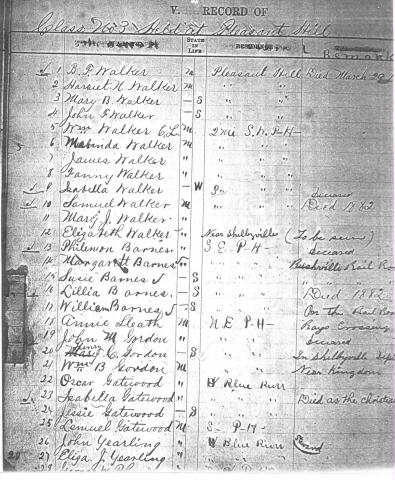 V. RECORD OF
Class No 3 Held at Pleasant Hill
STATE IN LIFE
1 B. F. Walker M Pleasant Hill Died March 29
2 Harriet N. Walker M " "
3 Mary B. Walker - S " "
4 John F Walker - S " "
5 Wm Walker C.L. M 2 mi S. W. P-H-
6 Malinda Walker M " " "
7 James Walker " " "
8 Fanny Walker " " "
9 Isabella Walker - W " "
10 Samuel Walker M " " Died 1882
11 Mary J. Walker " " "
12 Elizabeth Walker " Near Shelbyville (To be seen)
13 Philemon Barnes " S E P-H-
14 Margarett Barnes " " Rushville Rail Ro
15 Susie Barnes - S " "
16 Lillia Barnes. - S " Died 1882
17 William Barnes - S " On the Rail Ro
18 Annie Heath M N. E. P-H- Rays Crossing
19 John M Gordon "
20 Henry C. Gordon - S " In Shelbyville
21 Wm B Gordon M " Near Kingdom
22 Oscar Gatewood " W Blue River
23 Isabella Gatewood " " Died as the Christian
24 Jessie Gatewood - S "
25 Lemuel Gatewood M S- P-H-
26 John Yearling " W Blue River
27 Eliza J. Yearling " " "